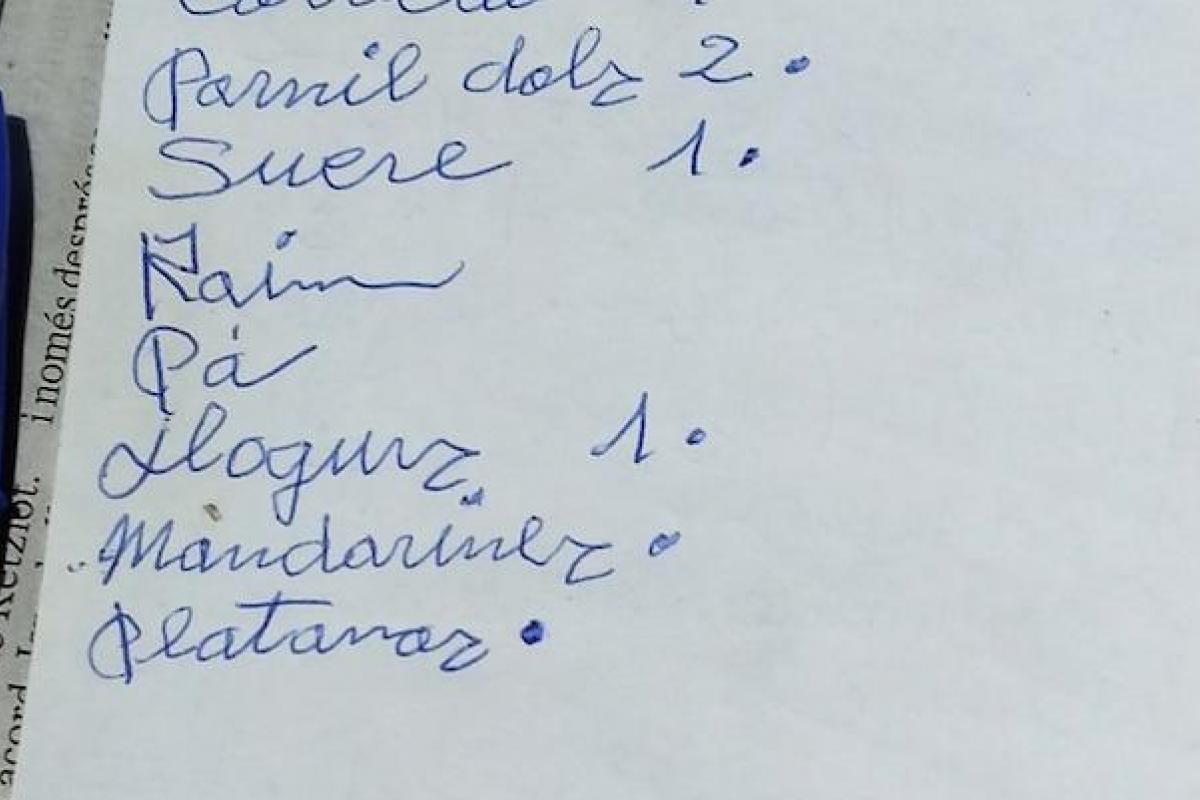 Pornil dolz 2.
Sucre 1.
Raim
Pá
Ilogurz 1.
Mandarinez.
Platanoz.
i només després
Ketziot.
acord